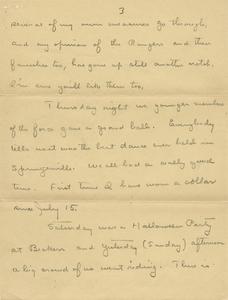 3
several of my own endeavors go through,
and my opinion of the Rangers and their
families too, has gone up still another notch.
I'm sure you'll like them too,
Thursday night us younger members
of the force gave a grand ball. Everybody
tells it was the best dance ever held in
Springerville. We all had a really good
time. First time I have worn a collar
since July 15.
Saturday was a Halloween Party
at Beckers and yesterday (Sunday) afternoon
a big crowd of us went riding. There is